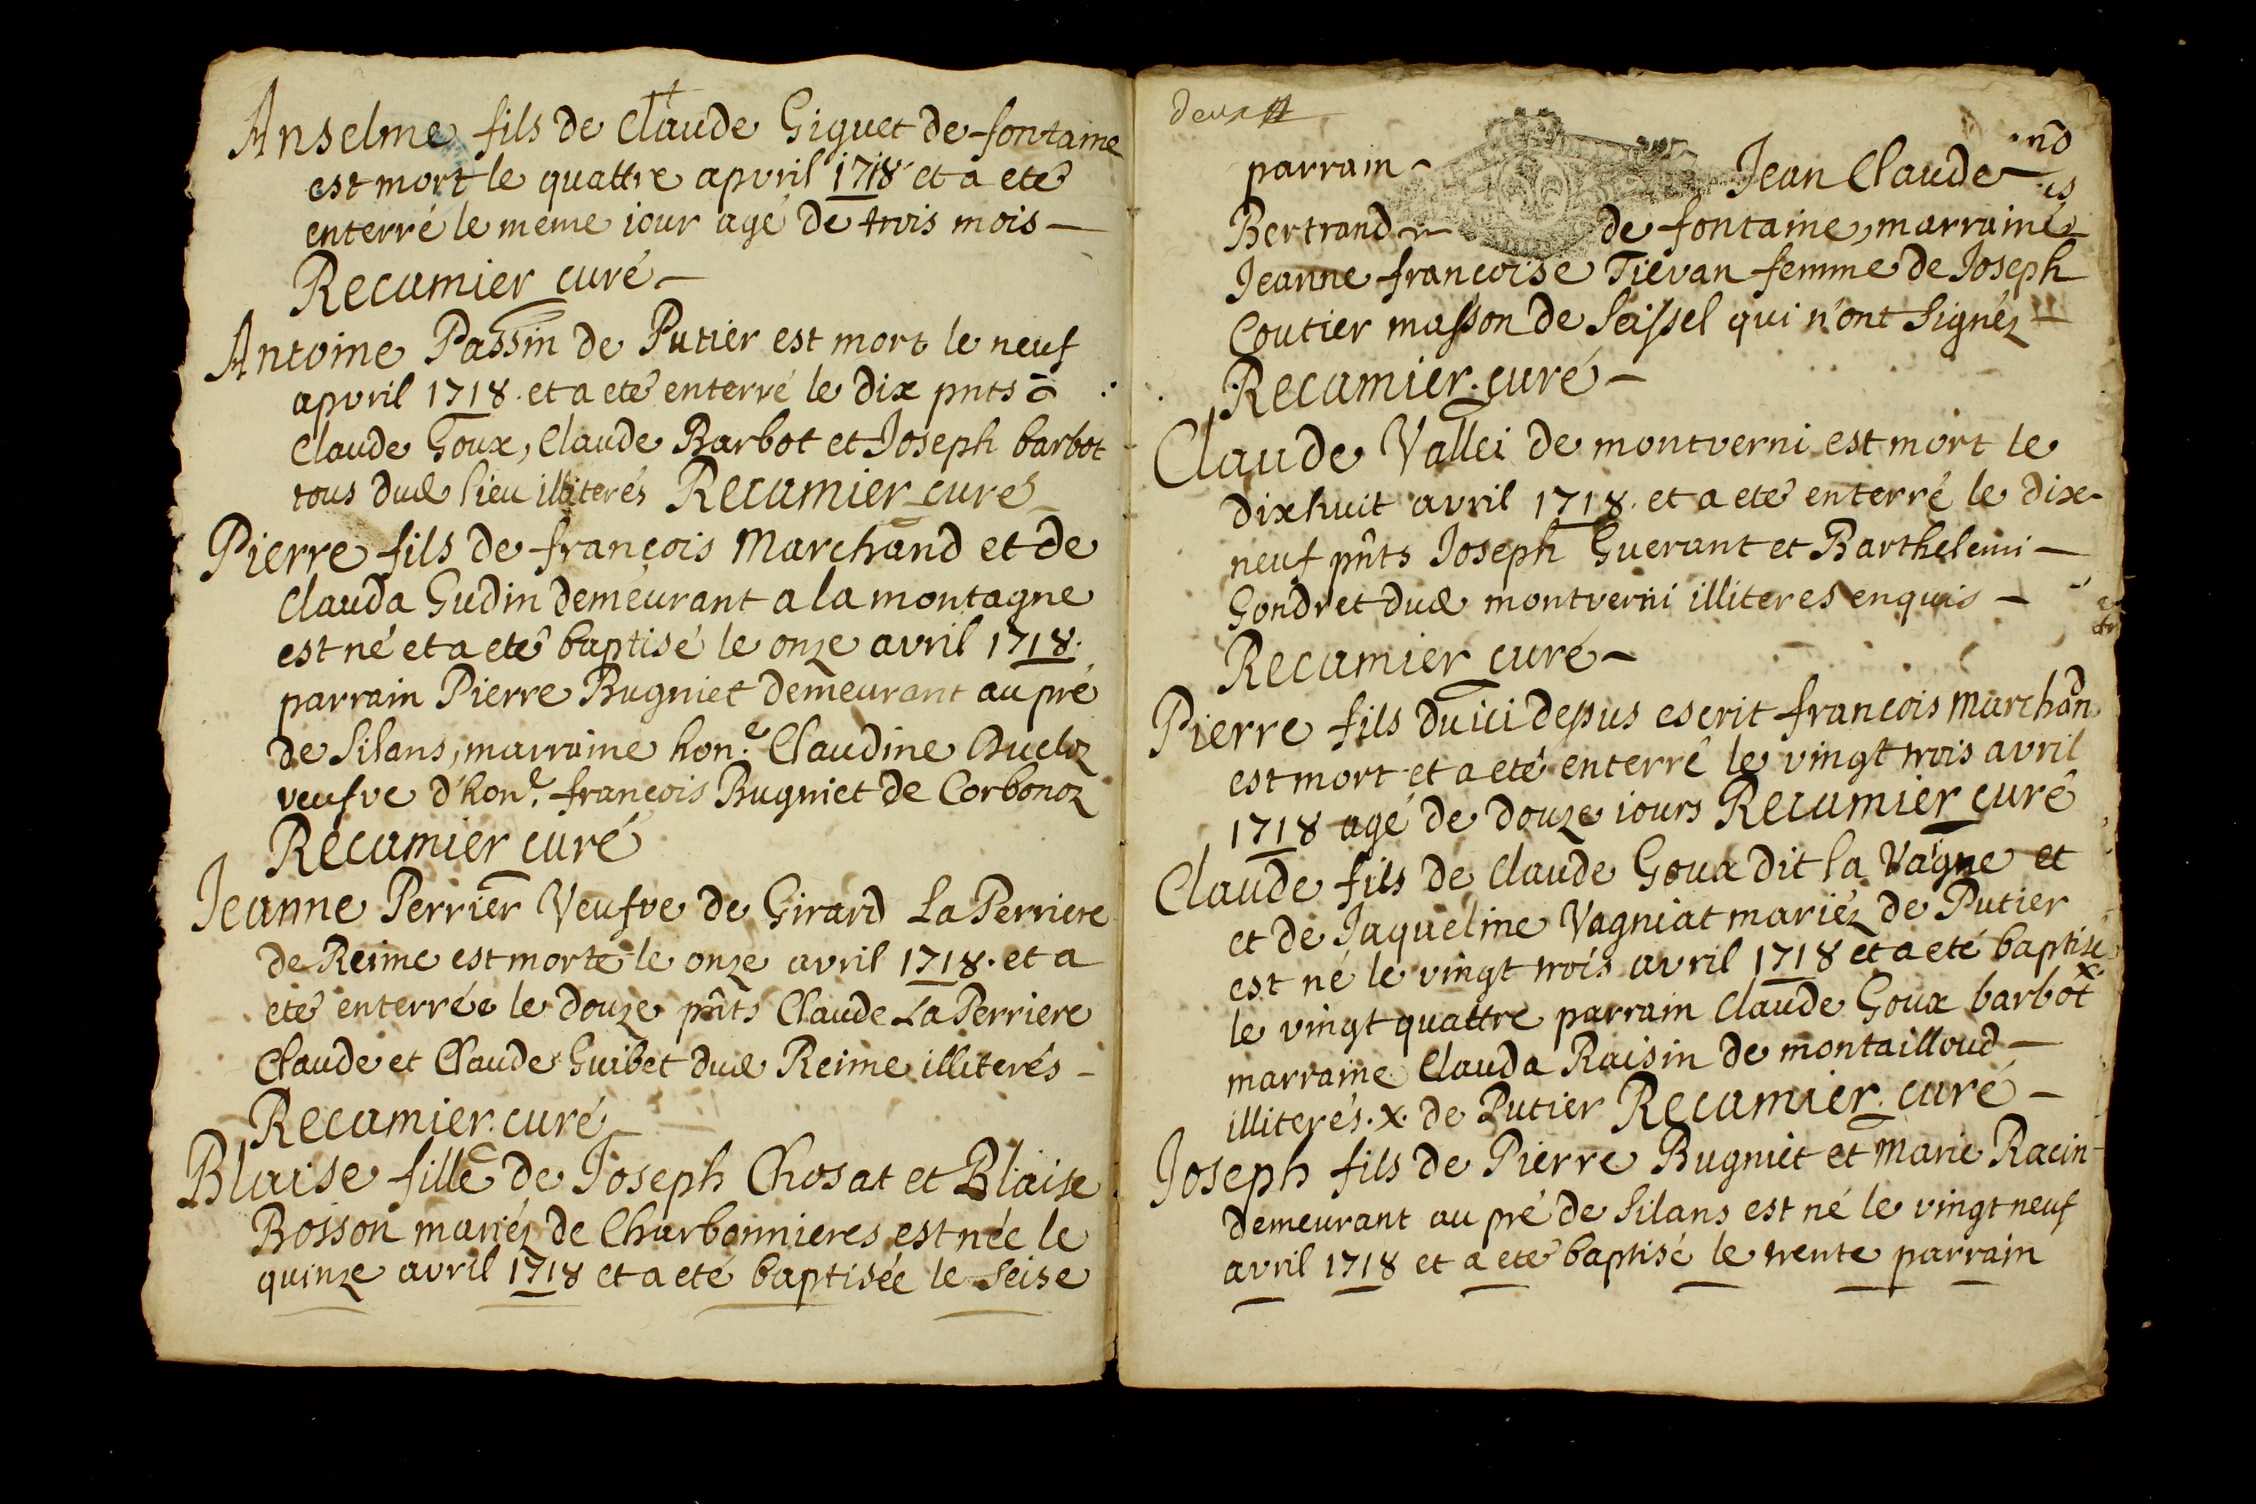 Anselme fils de Claude Giguet de fontaine
est mort le quattre apvril 1718 et a eté
enterré le meme iour agé de trois mois —
Recamier curé —
Antoine Passin de Putier est mort le neuf
apvril 1718. et a eté enterré le dix pnts
Claude Goux, Claude Barbot et Joseph barbot
tous dud lieu illiterés Recamier curé
Pierre fils de françois Marchand et de
Clauda Gudin demeurant a la montagne
est né et a eté baptisé le onze avril 1718.
parrain Pierre Bugniet demeurant au pré
de Silans, marraine hon.e Claudine Ducloz
veufve d'hon.e françois Bugniet de Corbonoz
Recamier curé
Jeanne Perrier Veufve de Girard La Perriere
de Reime est morte le onze avril 1718. et a
eté enterrée le douze pnts Claude La Perriere
Claude et Claude Guibet dud Reime illiterés —
Recamier. curé
Blaise fille de Joseph Chosat et Blaise
Bosson mariéz de Charbonnieres est née le
quinze avril 1718 et a eté baptisée le Seise
deux
parrain — Jean Claude —
Bertrand de fontaine, marraine
Jeanne françoise Tievan femme de Joseph
Coutier masson de Seissel qui n'ont Signéz —
Recamier. curé —
Claude Vallei de montverni est mort le
dixhuit avril 1718. et a eté enterré le dix-
neuf pnts Joseph Guerant et Barthelemi —
Gondret dud montverni illiteres enquis —
Recamier curé —
Pierre fils du ici depus escrit françois Marchand
est mort et a eté enterré le vingt trois avril
1718 agé de douze iours Recamier curé
Claude fils de Claude Goux dit la Vagne et
et de Jaqueline Vagniat mariéz de Putier
est né le vingt trois avril 1718 et a eté baptisé
le vingt quattre parrain Claude Goux barbot x
marraine Clauda Raisin de montailloud —
illiterés. x. de Putier Recamier. curé —
Joseph fils de Pierre Bugniet et Marie Racin
demeurant au pré de Silans est né le vingt neuf
avril 1718 et a eté baptisé le trente parrain